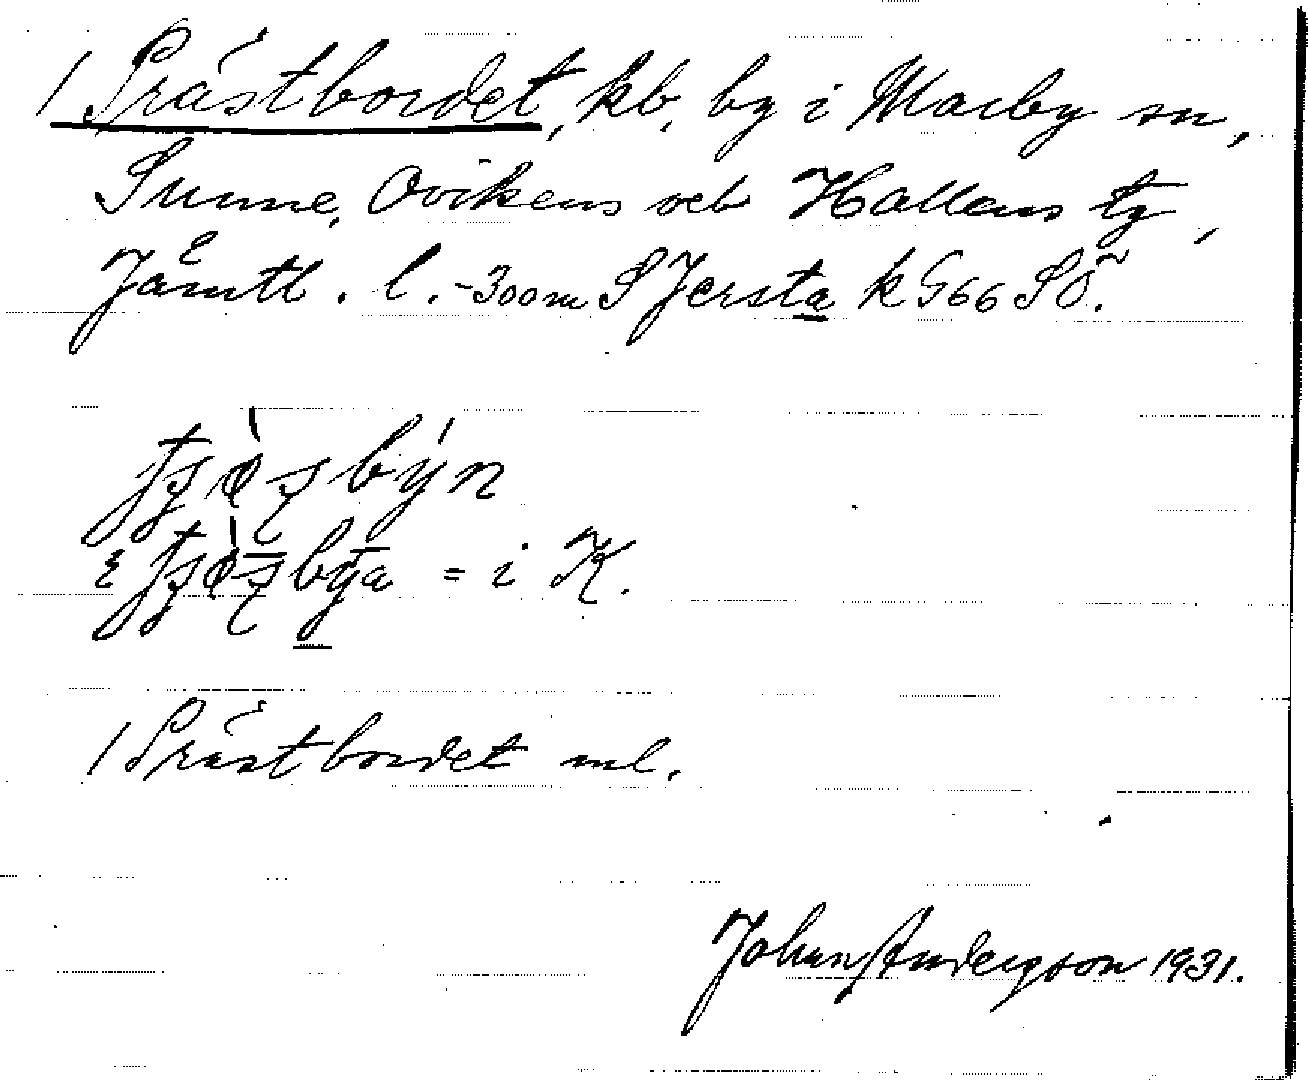 1 Prästbordet, kb, by i Marby sn,
Sunne, Ovikens och Hallens tg,
Jämtl. l. -300m S Jersta k G66 SÖ.
= i K.
1 Prästbordet ml.
Johan Anderson 1931.